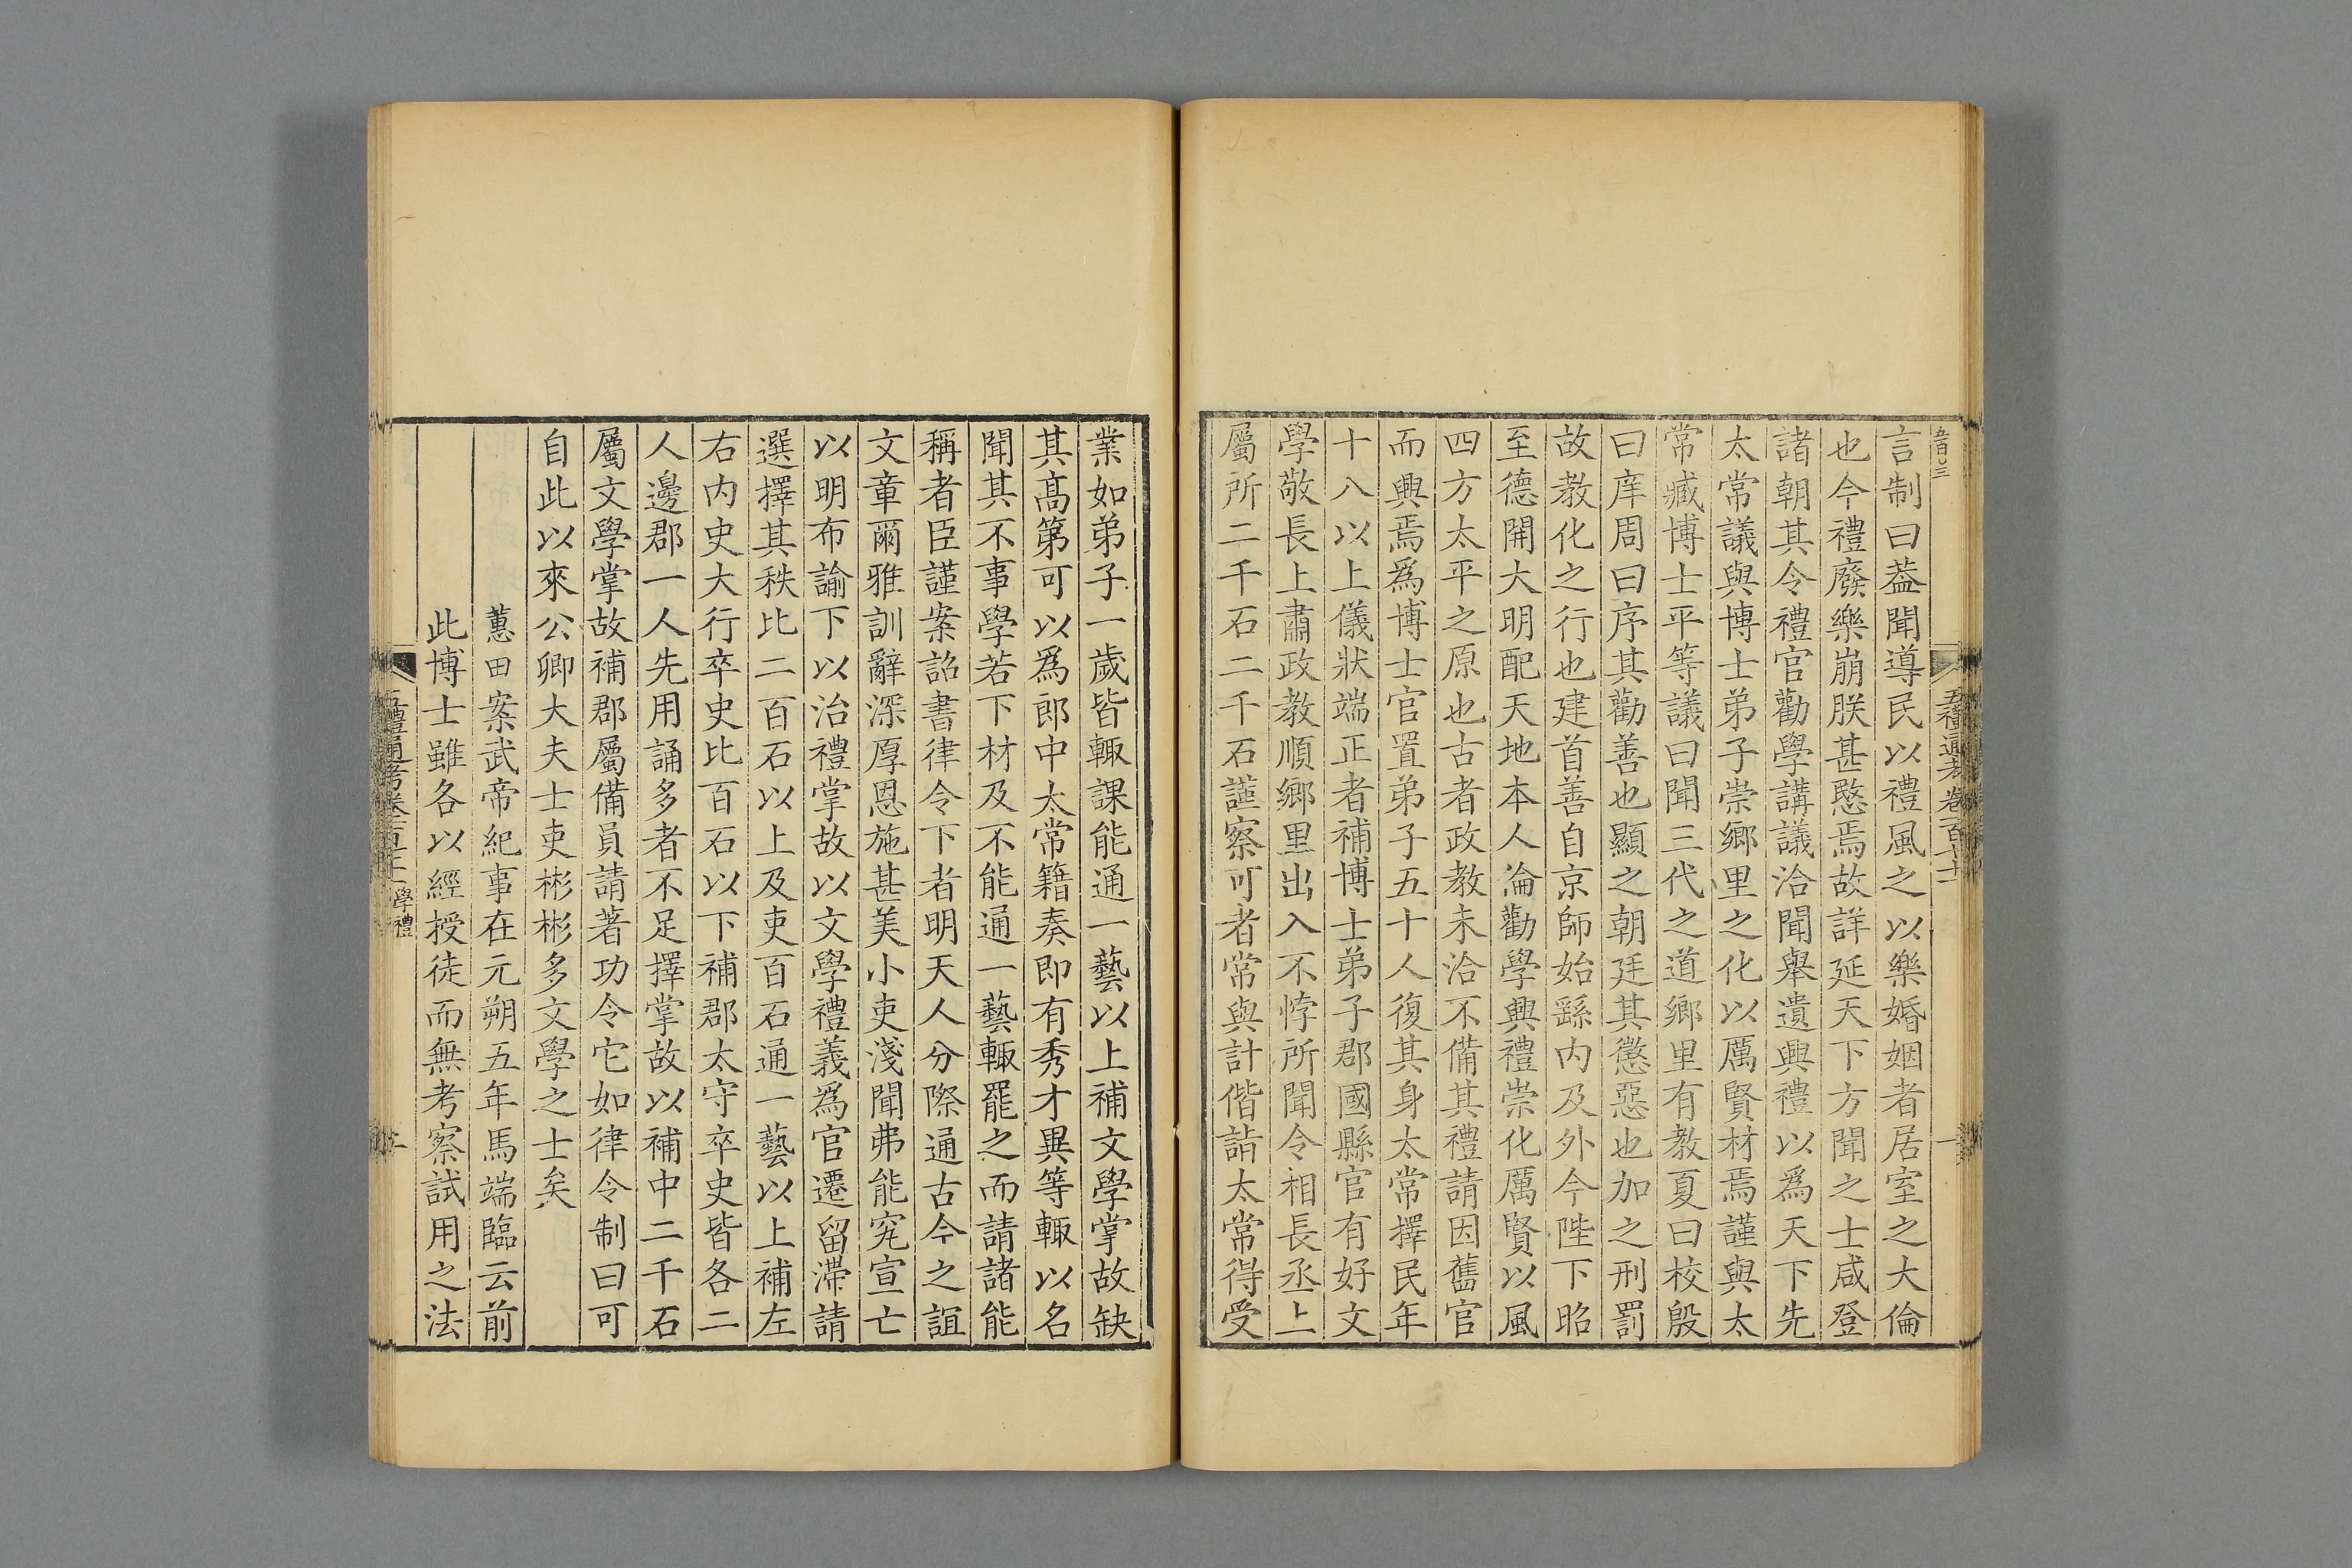 言制曰葢聞導民以禮風之以樂婚姻者居室之大倫
也今禮廢樂崩朕甚愍焉故詳延天下方聞之士咸登
諸朝其令禮官勸學講議洽聞舉遺興禮以爲天下先
太常議與博士弟子崇鄉里之化以厲賢材焉謹與太
常臧博士平等議曰聞三代之道鄉里有教夏曰校殷
曰庠周曰序其勸善也顯之朝廷其懲惡也加之刑罰
故教化之行也建首善自京師始繇内及外今陛下昭
至德開大明配天地本人倫勸學興禮崇化厲賢以風
四方太平之原也古者政教未洽不備其禮請因舊官
而興焉爲博士官置弟子五十人復其身太常擇民年
十八以上儀狀端正者補博士弟子郡國縣官有好文
學敬長上肅政教順鄉里出入不悖所聞令相長丞上
屬所二千石二千石謹察可者常與計偕詣太常得受
業如弟子一歲皆輒課能通一藝以上補文學掌故缺
其高第可以爲郎中太常籍奏即有秀才異等輒以名
聞其不事學若下材及不能通一藝輒罷之而請諸能
稱者臣謹案詔書律令下者明天人分際通古今之誼
文章爾雅訓辭深厚恩施甚美小吏淺聞弗能究宣亡
以明布諭下以治禮掌故以文學禮義爲官遷留滯請
選擇其秩比二百石以上及吏百石通一藝以上補左
右内史大行卒史比百石以下補郡太守卒史皆各二
人邊郡一人先用誦多者不足擇掌故以補中二千石
屬文學掌故補郡屬備員請著功令它如律令制曰可
自此以來公卿大夫士吏彬彬多文學之士矣
蕙田案武帝紀事在元朔五年馬端臨云前
此博士雖各以經授徒而無考察試用之法
學禮